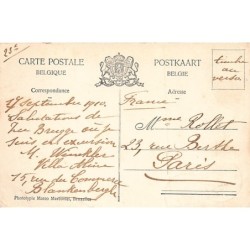 CARTE POSTALE
BELGIQUE
POSTKAART
BELGIE
Correspondance
27 Septembre 1910.
Salutations de
Zee Brugge où je
suis en excursion
M. Winckler
Villa Mira
15, rue du
Blankenberghe
Phototypie Marco Marcovici, Bruxelles
Adresse
timbre
au
verso
France
Mme Rollet
23, rue Berthe
Paris